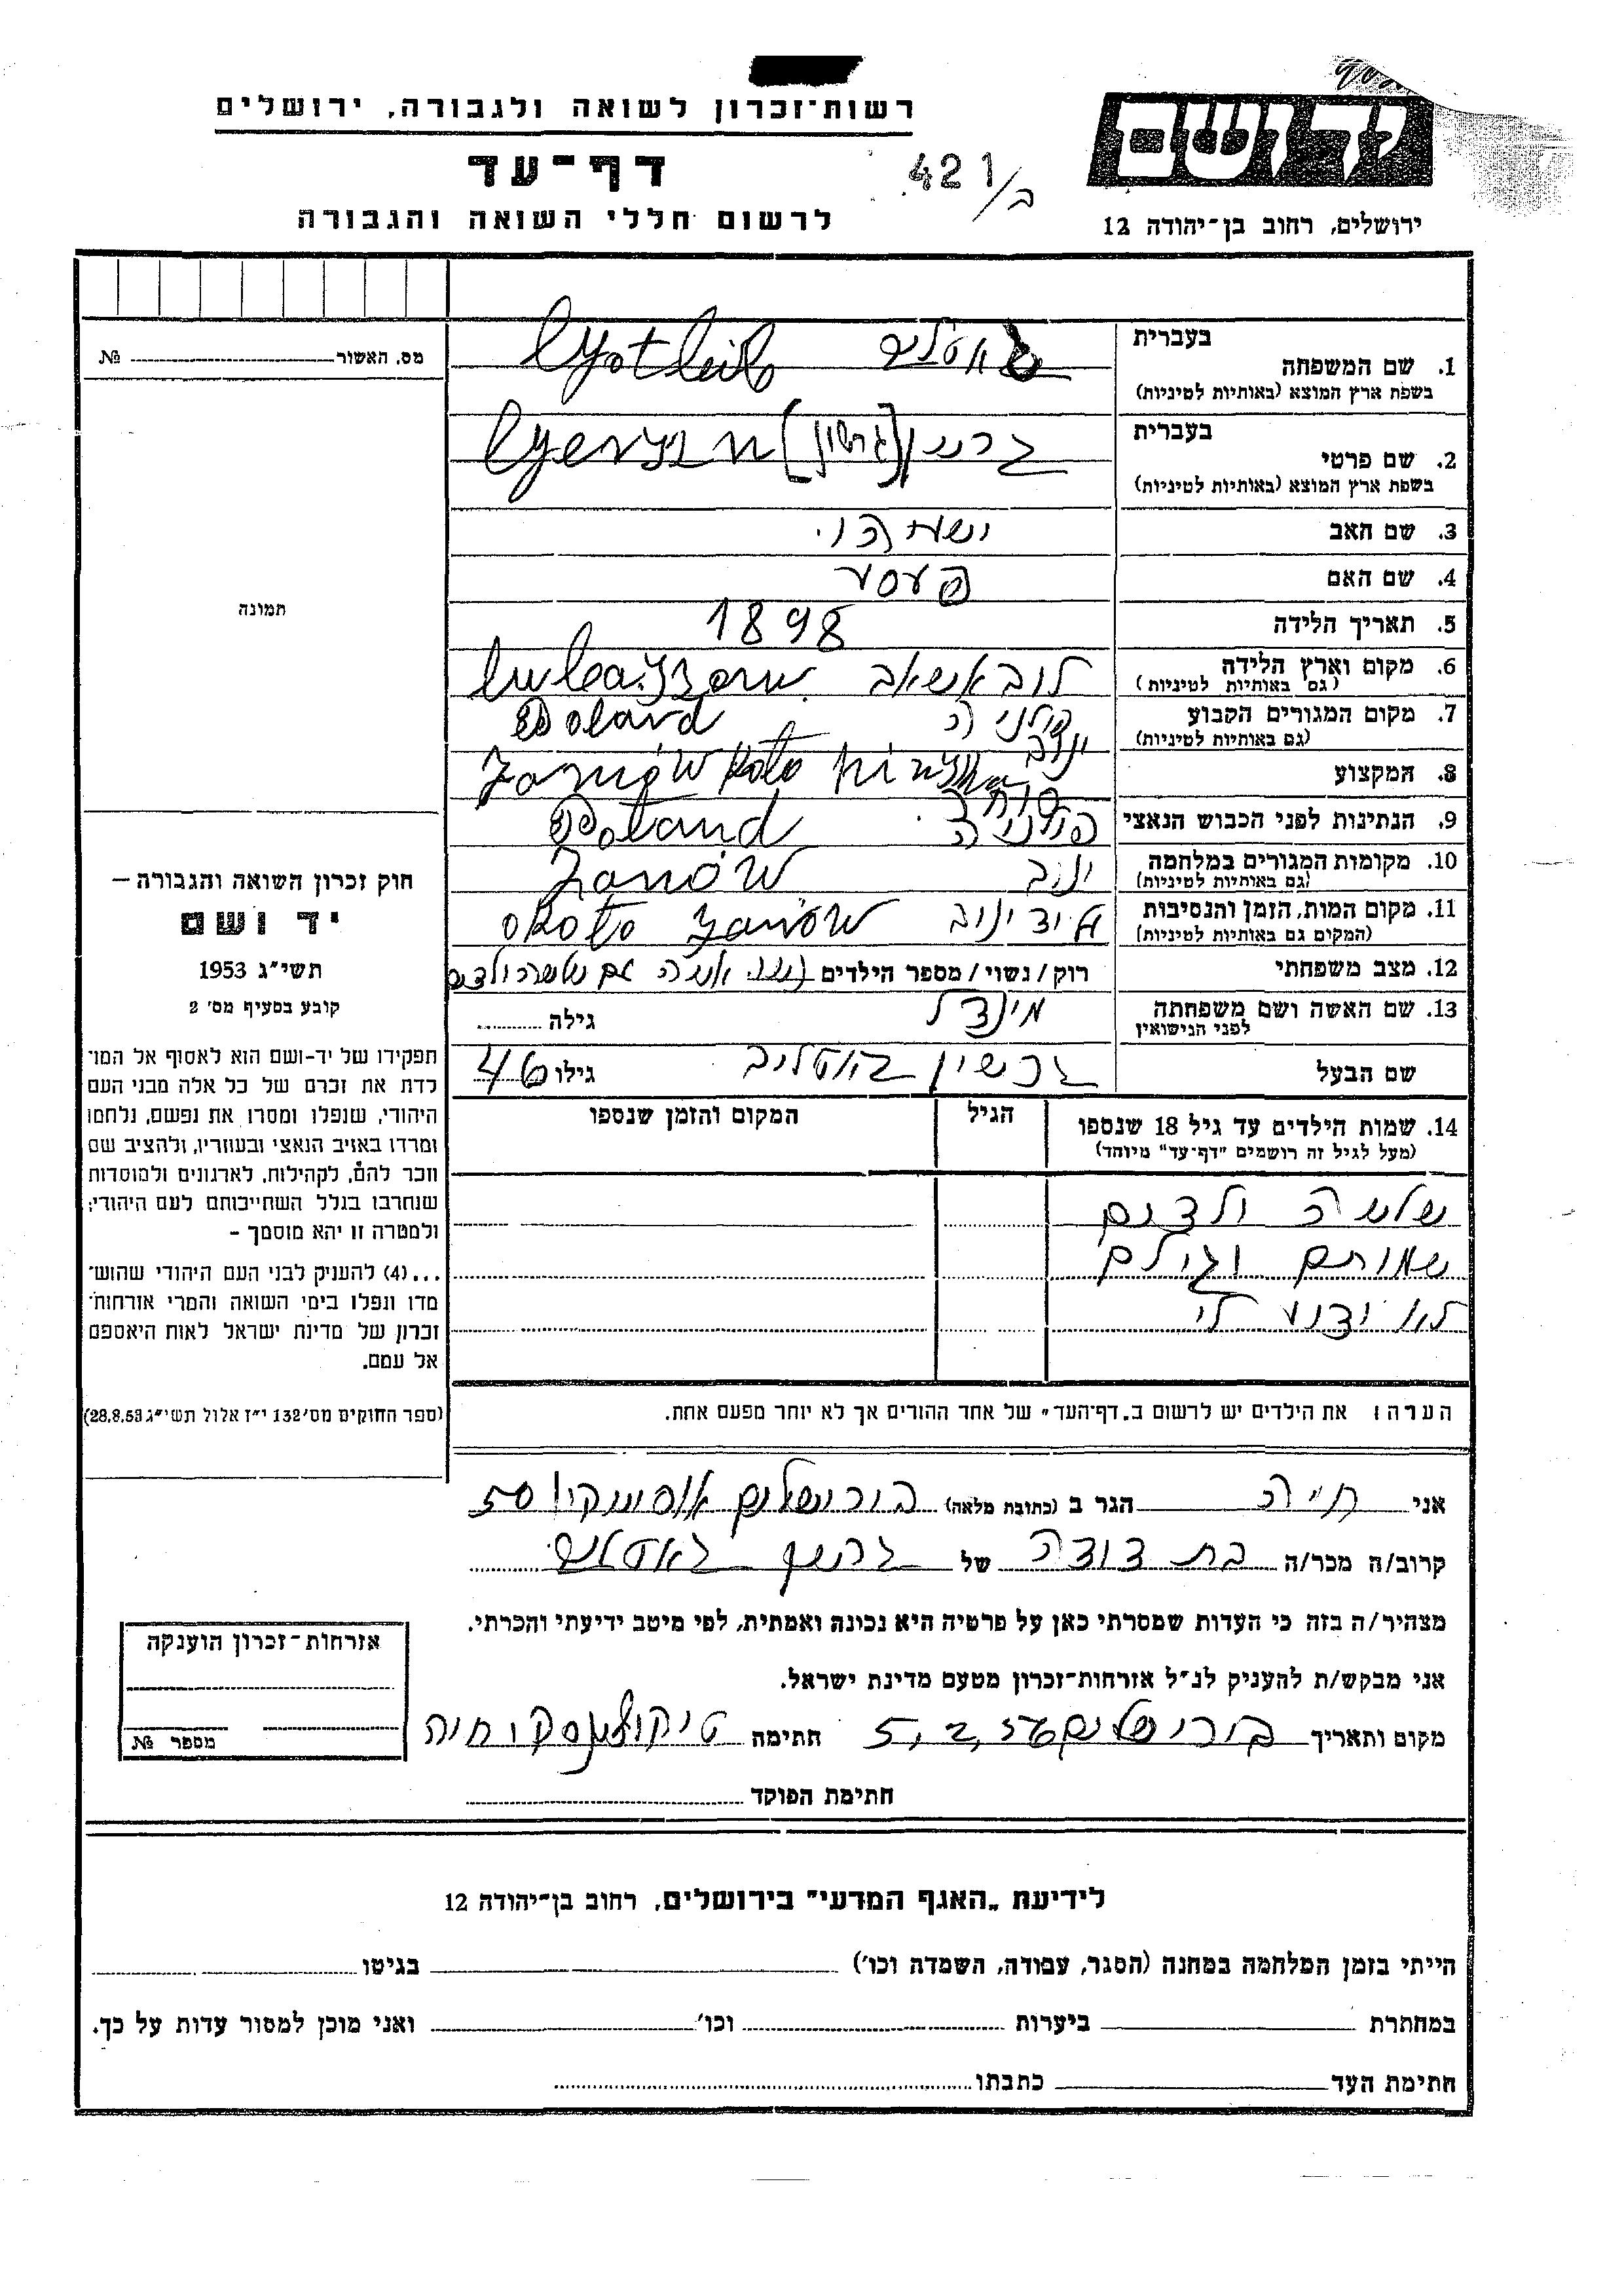 רשות־זכרון לשואה ולגבורה, ירושלים
דף־עד
לרשום חללי השואה והגבורה
421/ב
יד ושם
ירושלים, רחוב בן־יהודה 12
מס. האשור № 
1. שם המשפחה
בעברית
בשפת ארץ המוצא (באותיות לטיניות)
Gotleib
2. שם פרטי
בעברית
בשפת ארץ המוצא (באותיות לטיניות)
גרשון (גרשון) Gerszn
3. שם האב
4. שם האם פעסע
5. תאריך הלידה 1898
6. מקום וארץ הלידה
(גם באותיות לטיניות)
לובאשאב Lubaszow
פולניה Poland
7. מקום המגורים הקבוע
(גם באותיות לטיניות)
ינוב Janów koło Pińska
8. המקצוע סוחר
9. הנתינות לפני הכבוש הנאצי פולניה Poland
10. מקומות המגורים במלחמה ינוב Janów
(גם באותיות לטיניות)
11. מקום המות, הזמן והנסיבות על יד ינוב okolo Janów
(המקום גם באותיות לטיניות)
12. מצב משפחתי רוק/נשוי/מספר הילדים אשה עם שלשה ולדים
13. שם האשה ושם משפחתה מינדל גילה
לפני הנישואין
שם הבעל גרשון גוטליב גילו 46
14. שמות הילדים עד גיל 18 שנספו הגיל המקום והזמן שנספו
(מעל לגיל זה רושמים "דף־עד" מיוחד)
שלשה ולדים
שמותם וגילם
לא ידוע לי
הערה: את הילדים יש לרשום ב„דף־העד" של אחד ההורים אך לא יותר מפעם אחת.
תמונה
חוק זכרון השואה והגבורה —
יד ושם
תשי״ג 1953
קובע בסעיף מס׳ 2
תפקידו של יד-ושם הוא לאסוף אל המו־
לדת את זכרם של כל אלה מבני העם
היהודי, שנפלו ומסרו את נפשם, נלחמו
ומרדו באויב הנאצי ובעוזריו, ולהציב שם
וזכר להם, לקהילות, לארגונים ולמוסדות
שנחרבו בגלל השתייכותם לעם היהודי;
ולמטרה זו יהא מוסמך -
...(4) להעניק לבני העם היהודי שהוש־
מדו ונפלו בימי השואה והמרי אזרחות־
זכרון של מדינת ישראל לאות היאספם
אל עמם.
(ספר החוקים מס׳132 י״ז אלול תשי״ג 28.8.53)
אני חיה הגר ב (כתובת מלאה) בירושלים 50
קרוב/ה מכר/ה בת דודה של גרשון גאטליב
מצהיר/ה בזה כי העדות שמסרתי כאן על פרטיה היא נכונה ואמתית, לפי מיטב ידיעתי והכרתי.
אני מבקש/ת להעניק לנ״ל אזרחות־זכרון מטעם מדינת ישראל.
מקום ותאריך בירושלים 5,2,56 חתימה חיה
חתימת הפוקד
אזרחות־זכרון הוענקה
מספר №
לידיעת „האגף המדעי" בירושלים, רחוב בן־יהודה 12
הייתי בזמן המלחמה במחנה (הסגר, עבודה, השמדה וכו׳) בגיטו
במחתרת ביערות וכו׳ ואני מוכן למסור עדות על כך.
חתימת העד כתבתו